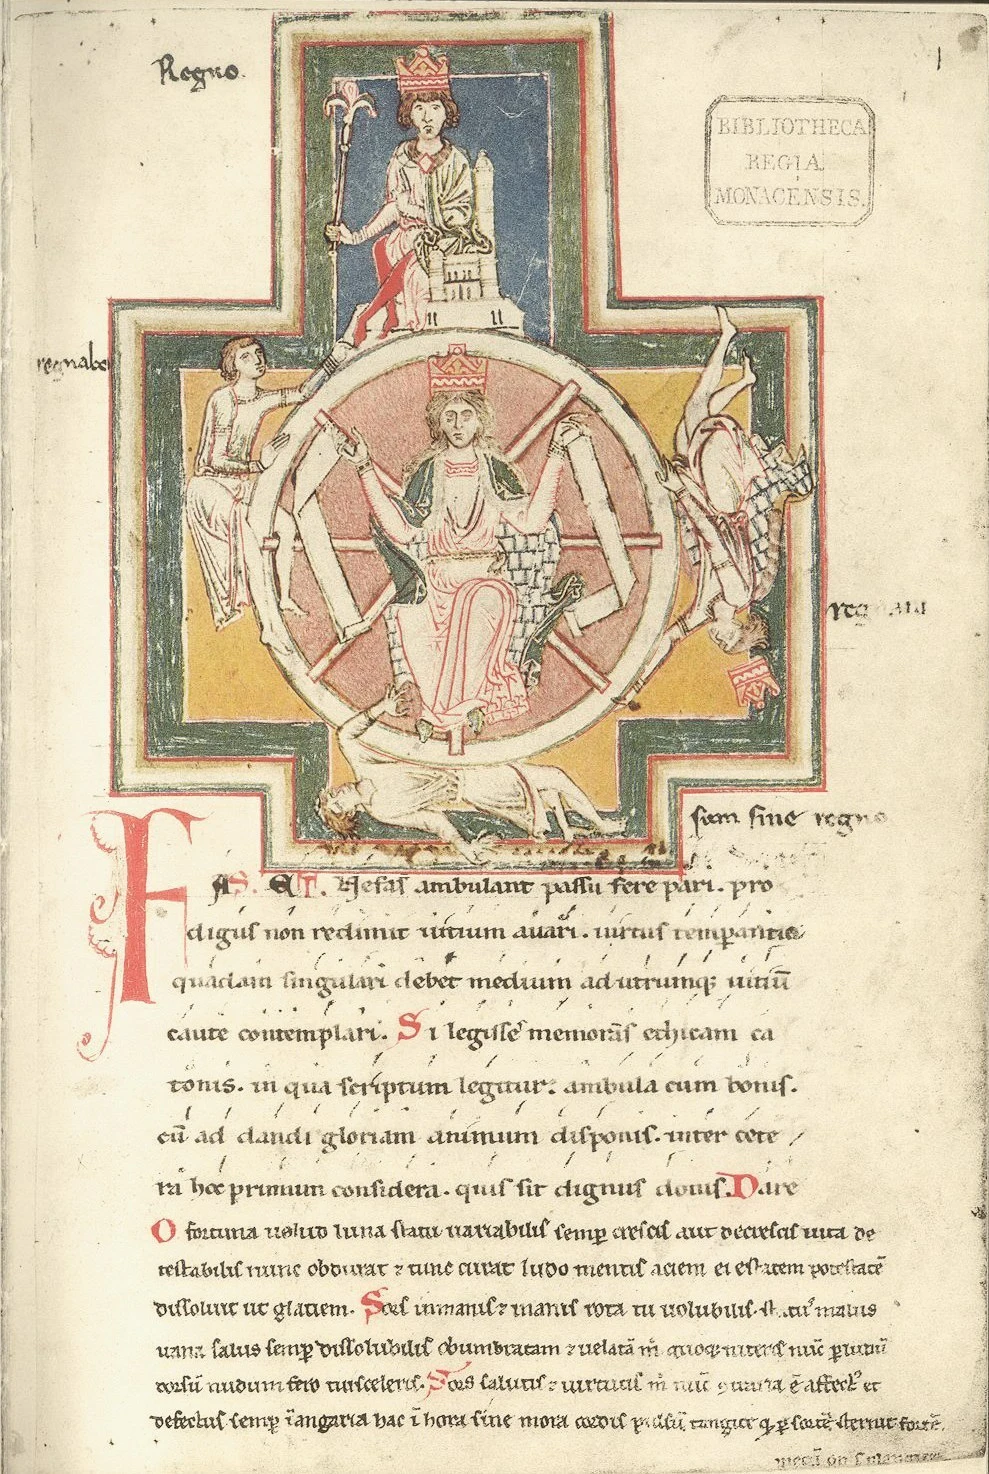 Regno
1
BIBLIOTHECA
REGIA
MONACENSIS.
regnabo
sum sine regno
FAS. ET. Nefas ambulant passu fere pari. pro
digus non redimit uitium auari. uirtus temperantia
quadam singulari debet medium ad utrumq; uitiū
caute contemplari. Si legisse memoras ethicam ca
tonis. in qua scriptum legitur. ambula cum bonis.
cū ad dandi gloriam animum disponis. inter cete
ra hoc primum considera. quis sit dignus donis. Dare
O fortuna uelud luna statu uariabilis semp crescis aut decrescis uita de
testabilis nunc obdurat ⁊ tunc curat ludo mentis aciem egestatem potestatē
dissoluit ut glatiem. Sors inmanis ⁊ inanis rota tu uolubilis status malus
uana salus semp dissolubilis obumbratam ⁊ uelatā m quoq; niteris nūc p ludū
dorsū nudum fero tui sceleris. Sors salutis ⁊ uirtutis m nūc ē affect et
defectus semp ī angaria hac ī hora sine mora cordis pulsū tangite q p sortē sternit fortē